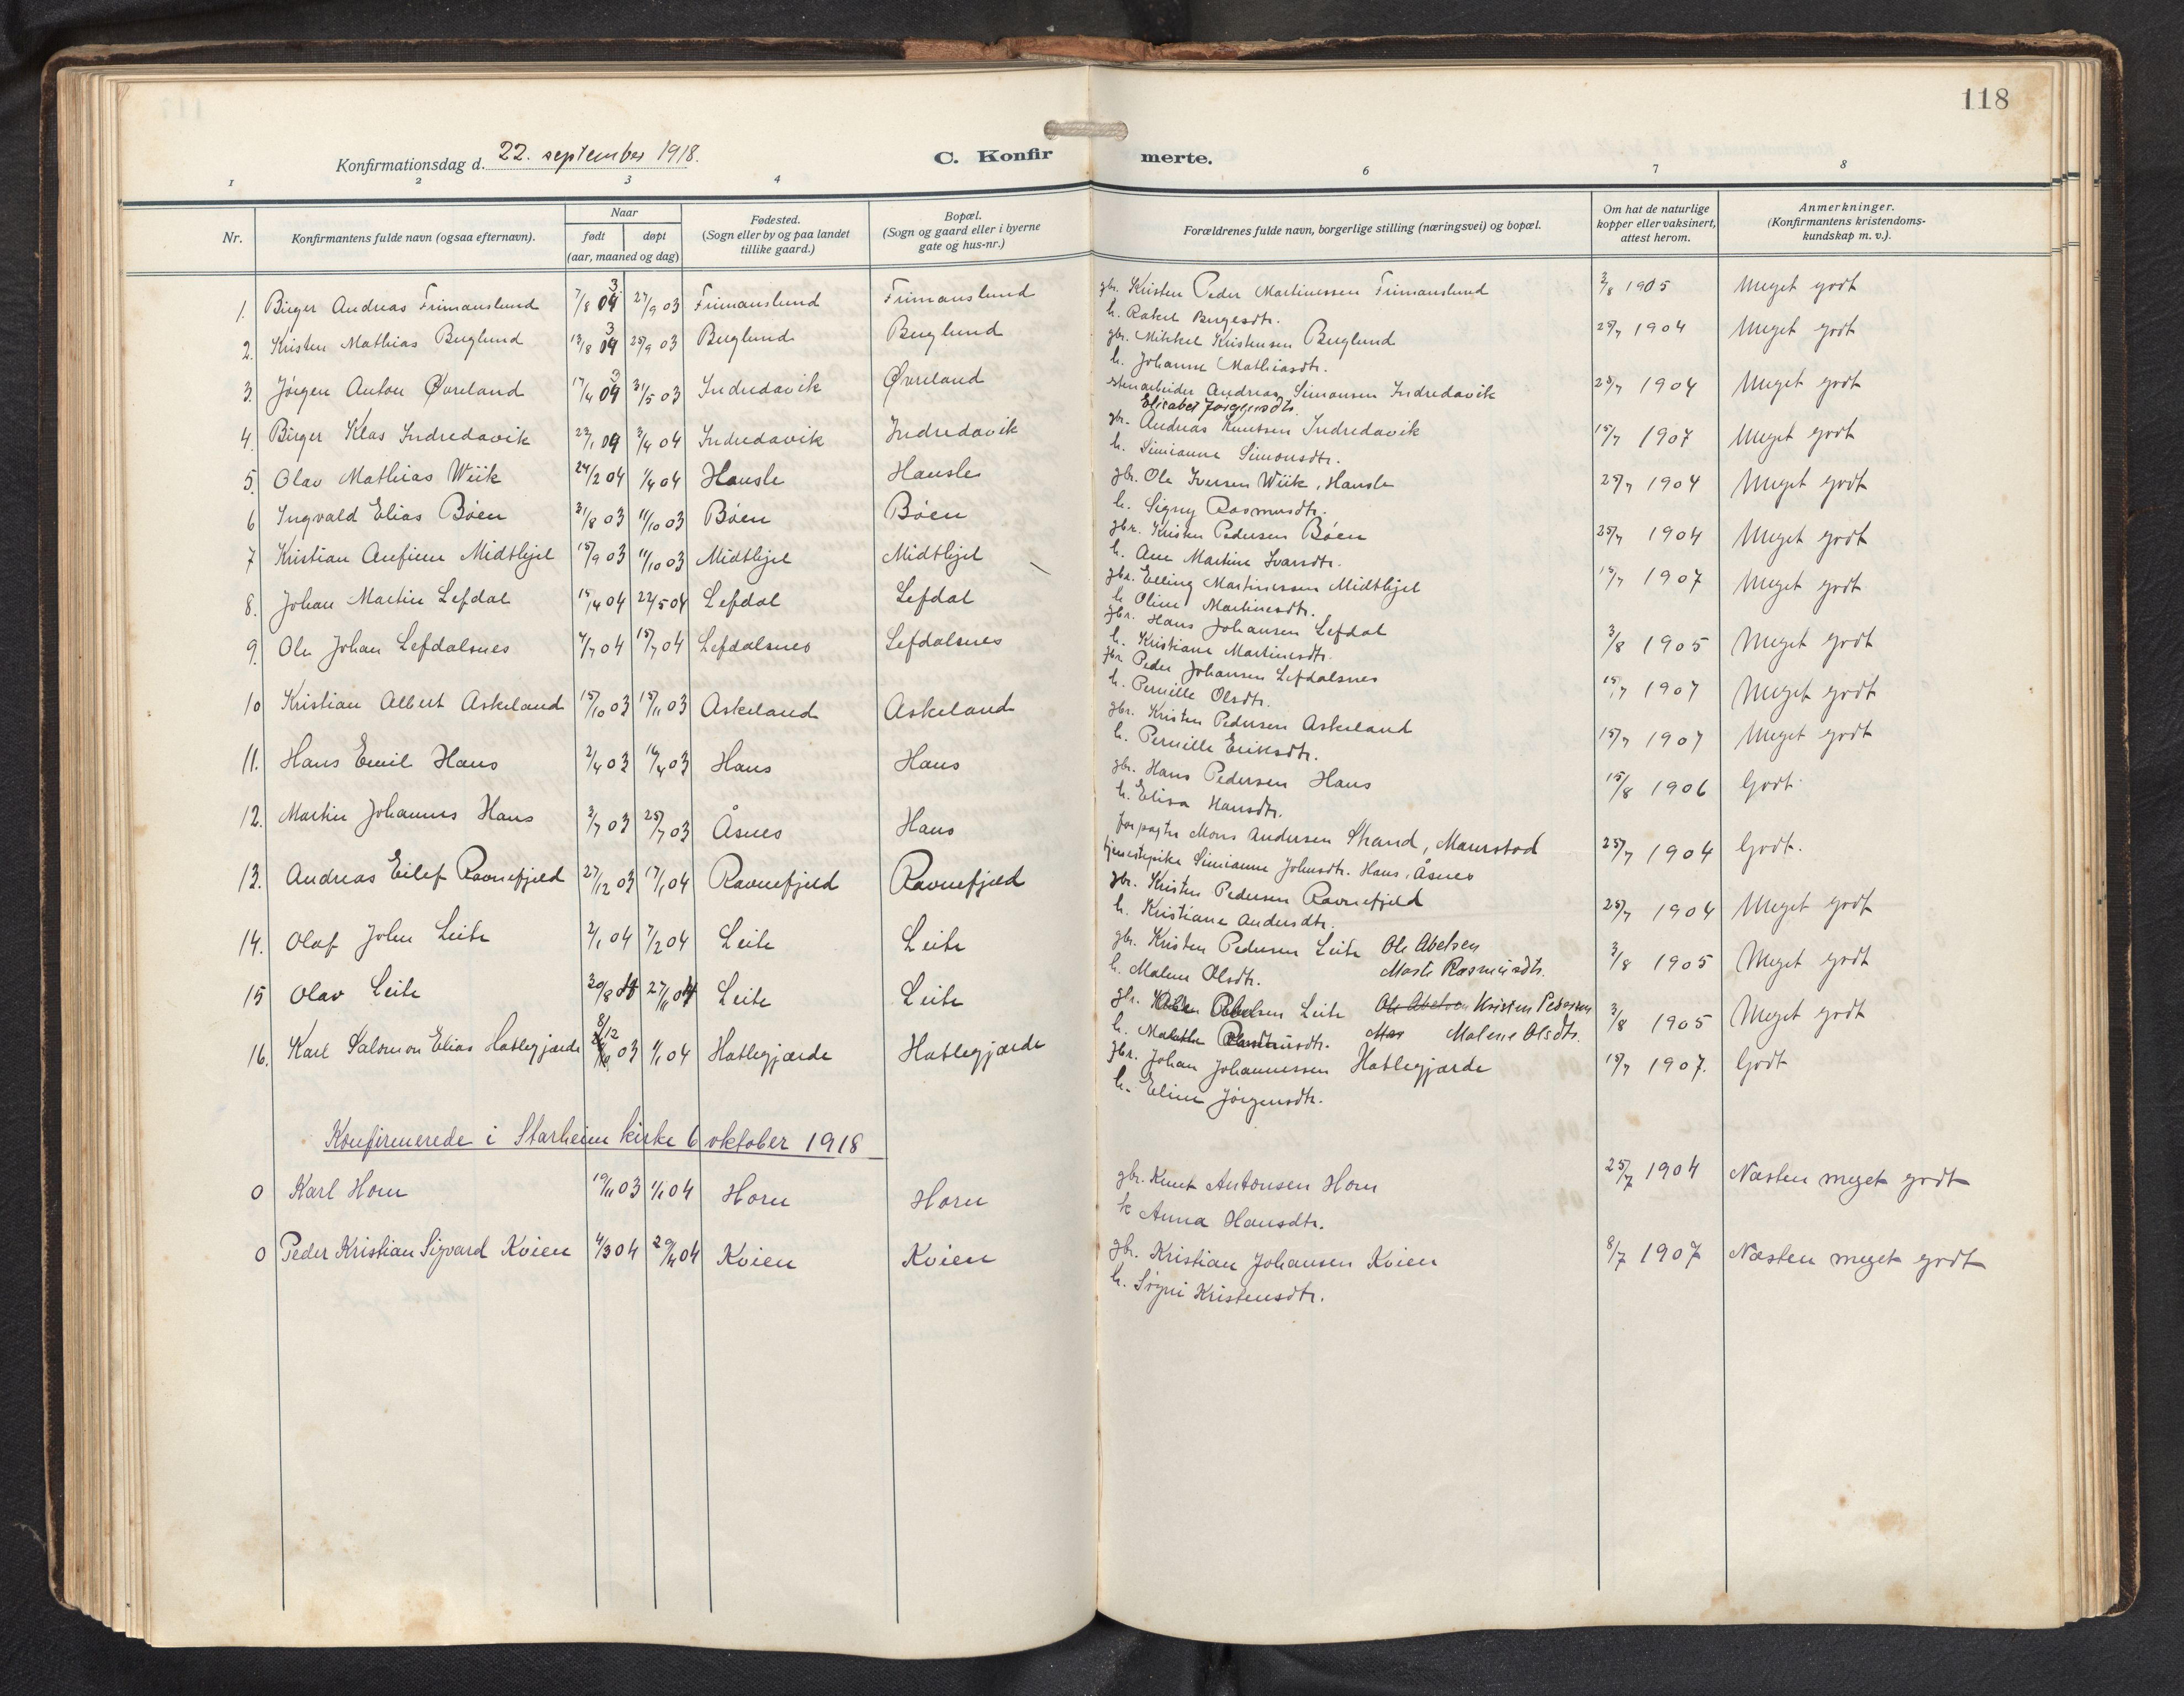 118
Konfirmationsdag d. 22. september 1918.
C. Konfirmerte.
1 2 3 4 6 7 8
Nr.
Konfirmantens fulde navn (ogsaa efternavn).
Naar
født
døpt
(aar, maaned og dag)
Fødested.
(Sogn eller by og paa landet
tillike gaard.)
Bopæl.
(Sogn og gaard eller i byerne
gate og hus-nr.)
Forældrenes fulde navn, borgerlige stilling (næringsvei) og bopæl.
Om hat de naturlige
kopper eller vaksinert,
attest herom.
Anmerkninger.
(Konfirmantens kristendoms-
kundskap m. v.).
1. Birger Andreas Frimanslund 7/8 03 27/9 03 Frimanslund Frimanslund gbr. Kristen Peder Martinussen Frimanslund 3/8 1905 Meget godt
h. Rakel Birgesdtr.
2. Kristen Mathias Buglund 13/8 03 25/9 03 Buglund Buglund gbr. Mikkel Kristensen Buglund 25/7 1904 Meget godt
h. Johanne Mathiasdtr.
3. Jørgen Anton Øvreland 17/4 03 31/5 03 Indredavik Øvreland stenarbeider Andreas Simonsen Indredavik 25/7 1904 Meget godt
Elisabet Jørgensdtr.
4. Birger Klas Indredavik 23/1 04 3/4 04 Indredavik Indredavik gbr. Andreas Knutsen Indredavik 15/7 1907 Meget godt
h. Simianne Simonsdtr.
5. Olav Mathias Wiik 24/2 04 1/4 04 Hausle Hausle gbr. Ole Iversen Wiik, Hausle 25/7 1904 Meget godt
h. Signy Rasmusdtr.
6 Ingvald Elias Bøen 31/8 03 11/10 03 Bøen Bøen gbr. Kristen Pedersen Bøen 25/7 1904 Meget godt
h. Ane Martine Ivarsdtr.
7 Kristian Anfinn Midthjel 15/9 03 11/10 03 Midthjel Midthjel gbr. Elling Martinussen Midthjel 15/7 1907 Meget godt
h. Oline Martinusdtr.
8. Johan Martin Lefdal 15/4 04 22/5 04 Lefdal Lefdal gbr. Hans Johansen Lefdal 3/8 1905 Meget godt
h. Kristiane Martinusdtr.
9. Ole Johan Lefdalsnes 4/7 04 15/7 04 Lefdalsnes Lefdalsnes gbr. Peder Johansen Lefdalsnes 15/7 1907 Meget godt
h. Pernille Olsdtr.
10 Kristian Albert Askeland 15/10 03 15/11 03 Askeland Askeland gbr. Kristen Pedersen Askeland 15/7 1907 Meget godt
h. Pernille Eriksdtr.
11. Hans Emil Haus 2/4 03 16/4 03 Haus Haus gbr. Hans Pedersen Haus 15/8 1906 Godt
h. Elisa Hansdtr.
12. Martin Johannes Haus 3/7 03 25/7 03 Åsnes Haus forpagter Mons Andersen Strand, Maurstad 25/7 1904 Godt.
tjenestepike Simianne Johnsdtr. Haus, Åsnes
13. Andreas Eilef Ravnefjeld 27/12 03 17/1 04 Ravnefjeld Ravnefjeld gbr. Kristen Pedersen Ravnefjeld 25/7 1904 Meget godt
h. Kristiane Andersdtr.
14. Olaf John Leite 2/1 04 7/2 04 Leite Leite gbr. Kristen Pedersen Leite Ole Abelsen 3/8 1905 Meget godt
h. Malene Olsdtr. Marte Rasmusdtr.
15 Olav Leite 20/8 27/11 04 Leite Leite gbr. Leite Ole Abelsen Kristen Pedersen 3/8 1905 Meget godt
h. Mar Malene Olsdtr.
16. Karl Salomon Elias Hatlegjærde 8/12 03 1/1 04 Hatlegjærde Hatlegjærde gbr. Johan Johannessen Hatlegjærde 15/7 1907. Godt
h. Eline Jørgensdtr.
Konfirmerede i Starheim kirke 6 oktober 1918
0 Karl Horn 19/11 03 1/1 04 Horn Horn gbr. Knut Antonsen Horn 25/7 1904 Næsten meget godt
h Anna Hansdtr.
0 Peder Kristian Sigvard Kvien 4/3 04 20/4 04 Kvien Kvien gbr. Kristian Johansen Kvien 8/7 1907 Næsten meget godt
h. Signi Kristensdtr.